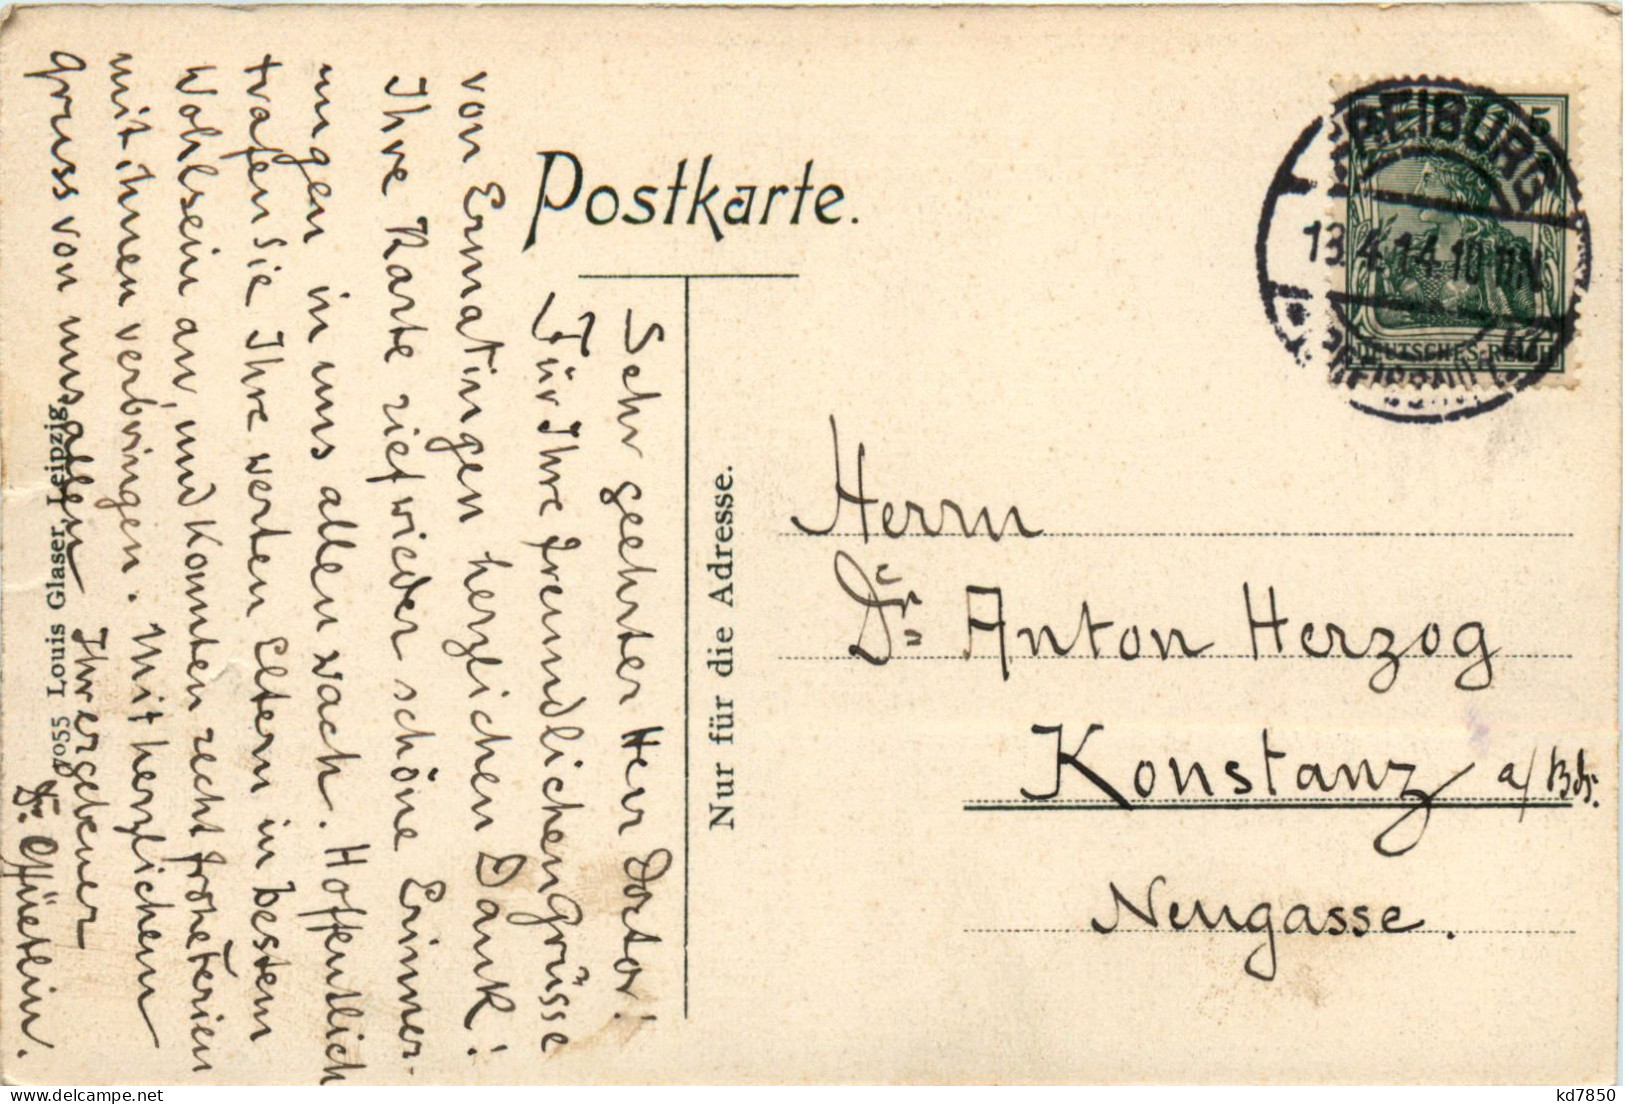 Postkarte.
Sehr geehrter Herr Doctor!
Für Ihre freundlichen Grüsse
von Ermatingen herzlichen Dank!
Ihre Karte rief wieder schöne Erinner-
ungen in uns allen wach. Hoffentlich
trafen Sie Ihre werten Eltern in bestem
Wohlsein an, und konnten recht frohe Ferien
mit ihnen verbringen. Mit herzlichem
Gruss von uns allen Ihr ergebener
Dr.
7055 Louis Glaser, Leipzig.
Nur für die Adresse.
FREIBURG
13.4.14.10
5 5
DEUTSCHES REICH
Herrn
Dr. Anton Herzog
Konstanz a/Bds.
Neugasse.
kd7850